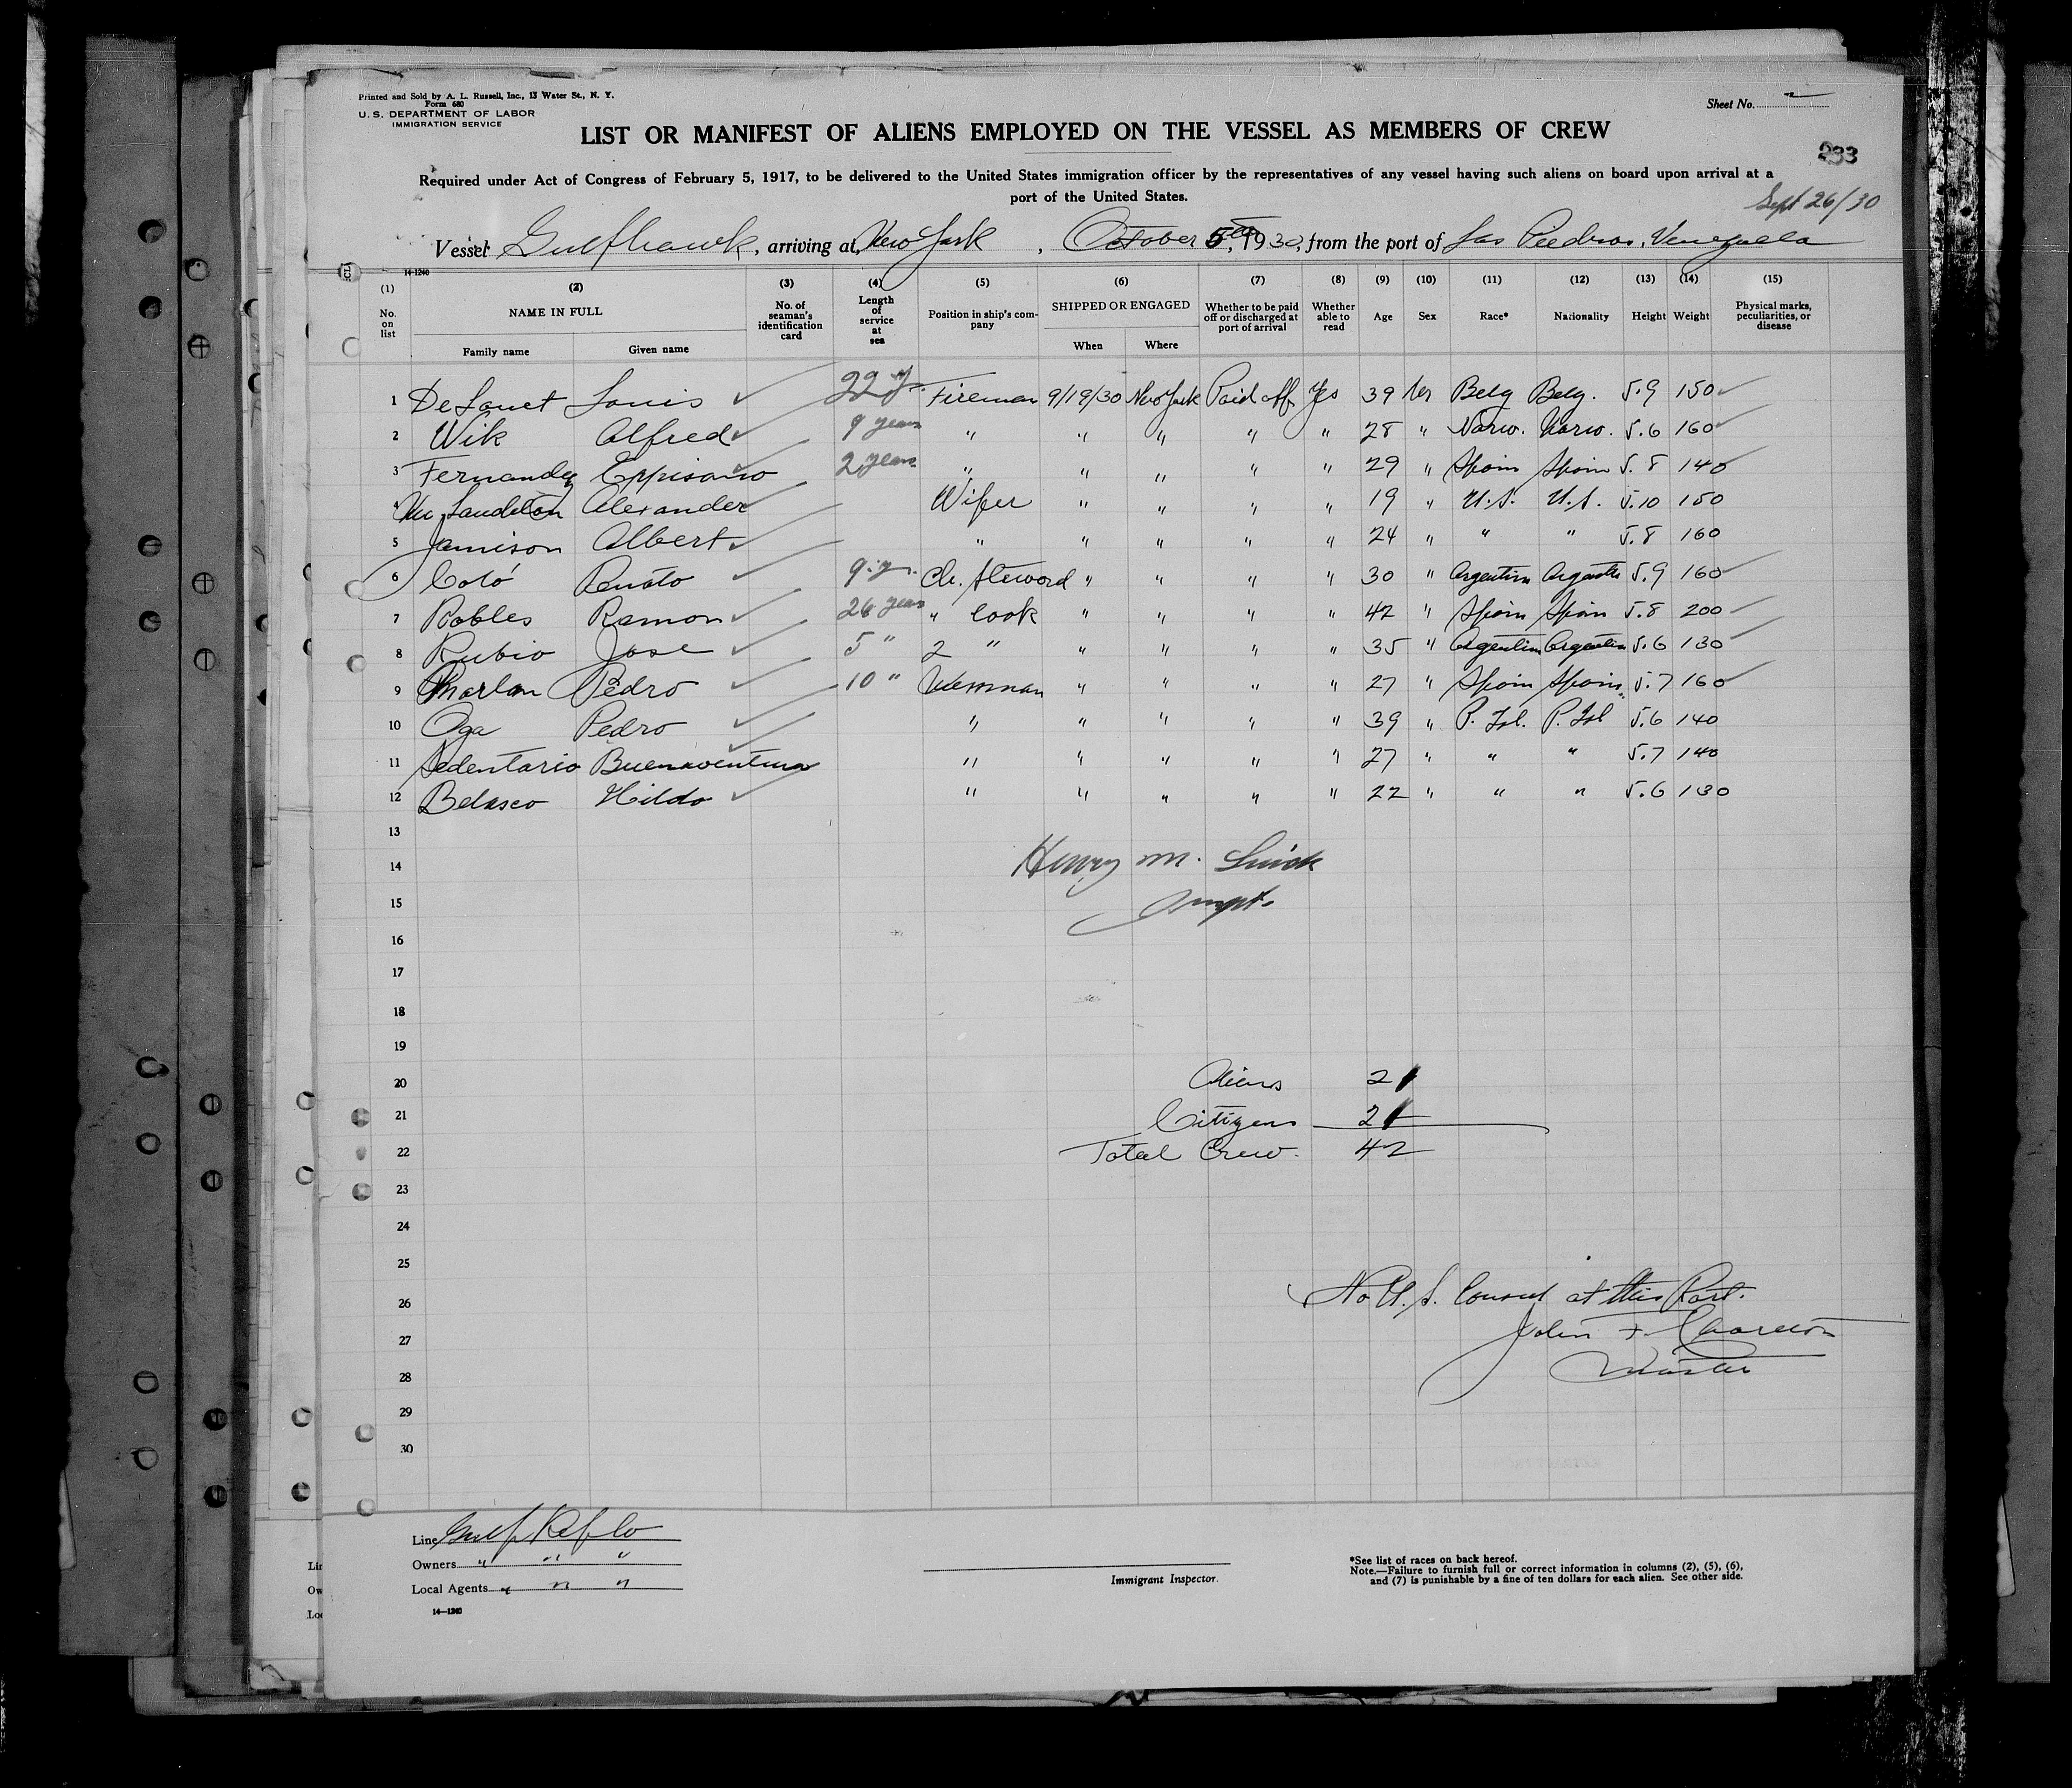 Printed and Sold by A. L. Russell, Inc., 13 Water St., N. Y.
Form 680
U. S. DEPARTMENT OF LABOR
IMMIGRATION SERVICE
Sheet No. 2
LIST OR MANIFEST OF ALIENS EMPLOYED ON THE VESSEL AS MEMBERS OF CREW
233
Required under Act of Congress of February 5, 1917, to be delivered to the United States immigration officer by the representatives of any vessel having such aliens on board upon arrival at a
port of the United States.
Sept 26/30
Vessel Gulfhawk, arriving at New York, October 5th, 1930, from the port of Las Piedras, Venezuela
14-1240
(1) (2) (3) (4) (5) (6) (7) (8) (9) (10) (11) (12) (13) (14) (15)
No. on list NAME IN FULL No. of seaman's identification card Length of service at sea Position in ship's company SHIPPED OR ENGAGED Whether to be paid off or discharged at port of arrival Whether able to read Age Sex Race* Nationality Height Weight Physical marks, peculiarities, or disease
Family name Given name When Where
1 Louis 22 y. Fireman 9/19/30 New York Paid off Yes 39 Belg Belg. 5.9 150
2 Wik Alfred 9 years " " " " " 28 " Norw. Norw. 5.6 160
3 Fernandez 2 years " " " " " 29 " Spain Spain 5.8 140
4 Alexander Wiper " " " " 19 " U.S. U.S. 5.10 150
5 Jamison Albert " " " " " 24 " " " 5.8 160
6 Renato 9 y. Ch. Steward " " " " 30 " Argentina Argentina 5.9 160
7 Robles Ramon 26 years " Cook " " " " 42 " Spain Spain 5.8 200
8 Rubio Jose 5 " 2 " " " " " 35 " Argentina Argentina 5.6 130
9 Pedro 10 " Messman " " " " 27 " Spain Spain 5.7 160
10 Oga Pedro " " " " " 39 " P. Isl. P. Isl 5.6 140
11 Sedentario Buenaventura " " " " " 27 " " " 5.7 140
12 Belasco Hildo " " " " " 22 " " " 5.6 130
13
14 Henry M.
15
16
17
18
19
20 Aliens 21
21 Citizens 21
22 Total Crew. 42
23
24
25
26 No U. S. Consul at this Port.
27 John F.
28 Master
29
30
Line Gulf Ref Co
Owners " " "
Local Agents " " "
14—1240
Immigrant Inspector.
*See list of races on back hereof.
Note.—Failure to furnish full or correct information in columns (2), (5), (6),
and (7) is punishable by a fine of ten dollars for each alien. See other side.